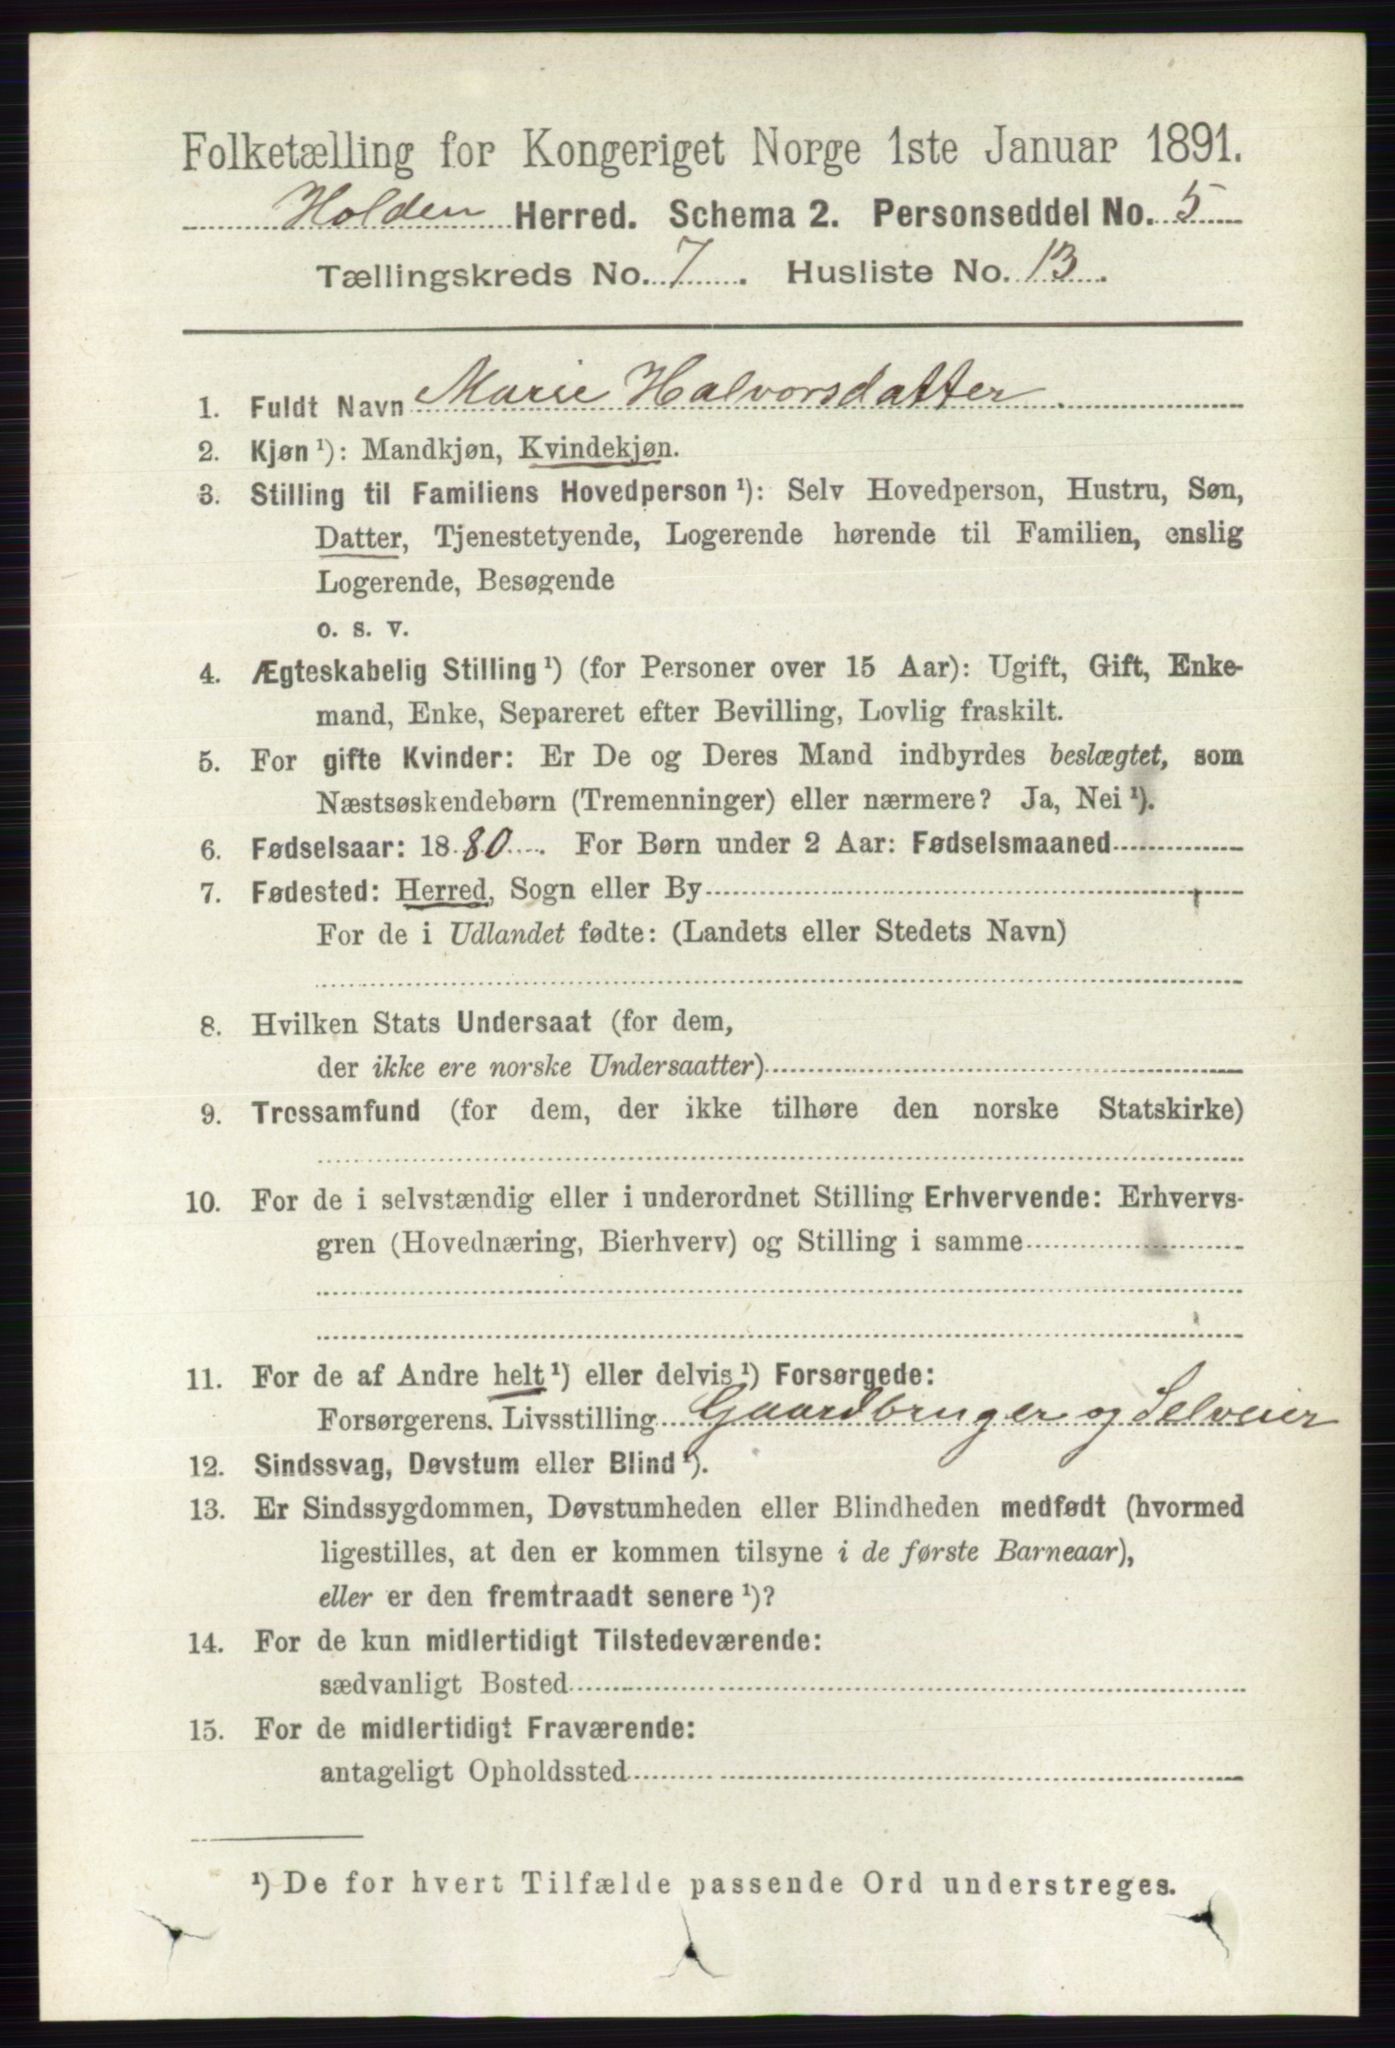 Folketælling for Kongeriget Norge 1ste Januar 1891.
Holden Herred. Schema 2. Personseddel No. 5
Tællingskreds No. 7. Husliste No. 13.
1. Fuldt Navn Marie Halvorsdatter
2. Kjøn ¹): Mandkjøn, Kvindekjøn.
3. Stilling til Familiens Hovedperson ¹): Selv Hovedperson, Hustru, Søn,
Datter, Tjenestetyende, Logerende hørende til Familien, enslig
Logerende, Besøgende
o. s. v.
4. Ægteskabelig Stilling ¹) (for Personer over 15 Aar): Ugift, Gift, Enke-
mand, Enke, Separeret efter Bevilling, Lovlig fraskilt.
5. For gifte Kvinder: Er De og Deres Mand indbyrdes beslægtet, som
Næstsøskendebørn (Tremenninger) eller nærmere? Ja, Nei ¹).
6. Fødselsaar: 1880. For Børn under 2 Aar: Fødselsmaaned
7. Fødested: Herred, Sogn eller By
For de i Udlandet fødte: (Landets eller Stedets Navn)
8. Hvilken Stats Undersaat (for dem,
der ikke ere norske Undersaatter)
9. Trossamfund (for dem, der ikke tilhøre den norske Statskirke)
10. For de i selvstændig eller i underordnet Stilling Erhvervende: Erhvervs-
gren (Hovednæring, Bierhverv) og Stilling i samme
11. For de af Andre helt ¹) eller delvis ¹) Forsørgede:
Forsørgerens Livsstilling Gaardbruger og Selveier
12. Sindssvag, Døvstum eller Blind ¹).
13. Er Sindssygdommen, Døvstumheden eller Blindheden medfødt (hvormed
ligestilles, at den er kommen tilsyne i de første Barneaar),
eller er den fremtraadt senere ¹)?
14. For de kun midlertidigt Tilstedeværende:
sædvanligt Bosted
15. For de midlertidigt Fraværende:
antageligt Opholdssted
¹) De for hvert Tilfælde passende Ord understreges.